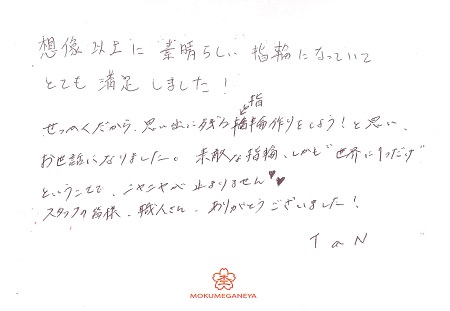 想像以上に 素晴らしい 指輪になっていて
とても 満足 しました！
指
せっかくだから、思い出に残る輪作りをしよう！と思い、
お世話になりました。素敵な指輪、しかも"世界に1つだけ"
ということで、ニヤニヤが止まりません♥♥
スタッフの皆様、職人さん、ありがとうございました！
T a N
MOKUMEGANEYA